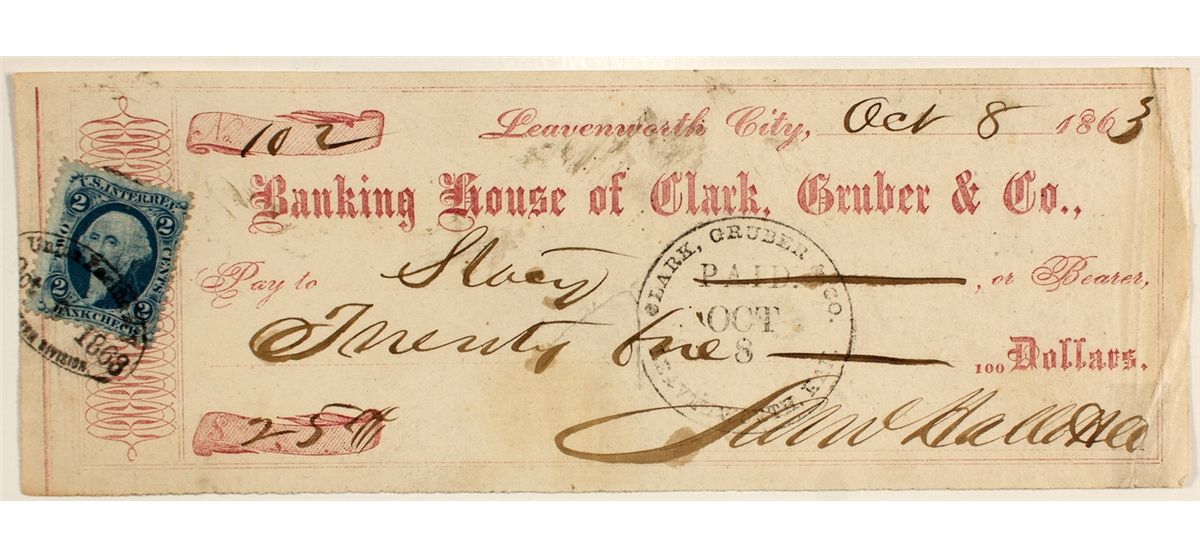 No 102
Leavenworth City, Oct 8 1863
Banking House of Clark, Gruber & Co.,
Pay to Stacy, or Bearer,
Twenty five 100 Dollars.
$ 25 00
U.S. INTER. REV.
2 2
TWO CENTS
2 2
BANK CHECK
Union Pacific
Oct
1863
ERN DIVISION.
CLARK, GRUBER & CO.
PAID.
OCT
8
LEAVENWORTH CITY